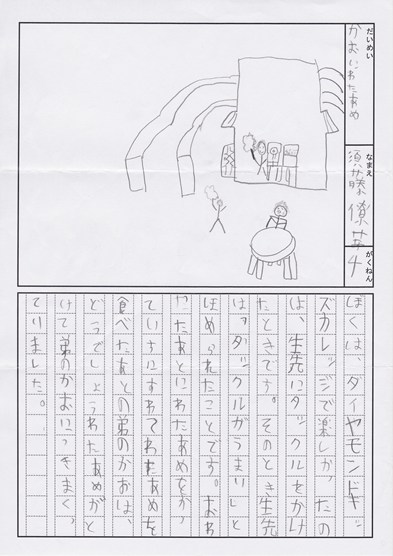 だいめい
かおにわたあめ
なまえ
須藤 僚
がくねん
4
ぼくは、ダイヤモンドキッ
ズカレッジで楽しかったの
は、先生にタックルをかけ
たときです。そのとき先生
は、タックルがうまいしと
ほめられたことです。おわ
ったあとにわたあめをかっ
ていちにすわてわたあめを
食べたあとの弟のかおは、
どうでしょうわたあめがと
けて弟のかおにつきまくっ
ていました。